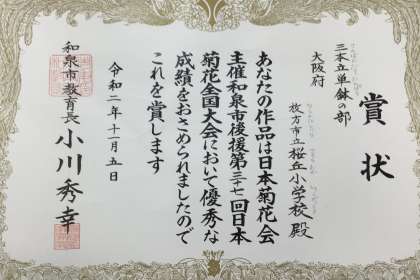 賞状
三本立単鉢の部
大阪府
枚方市立桜丘小学校 殿
あなたの作品は日本菊花会
主催和泉市後援第三十七回日本
菊花全国大会において優秀な
成績をおさめられましたので
これを賞します
令和二年十一月五日
和泉市教育長 小川秀幸